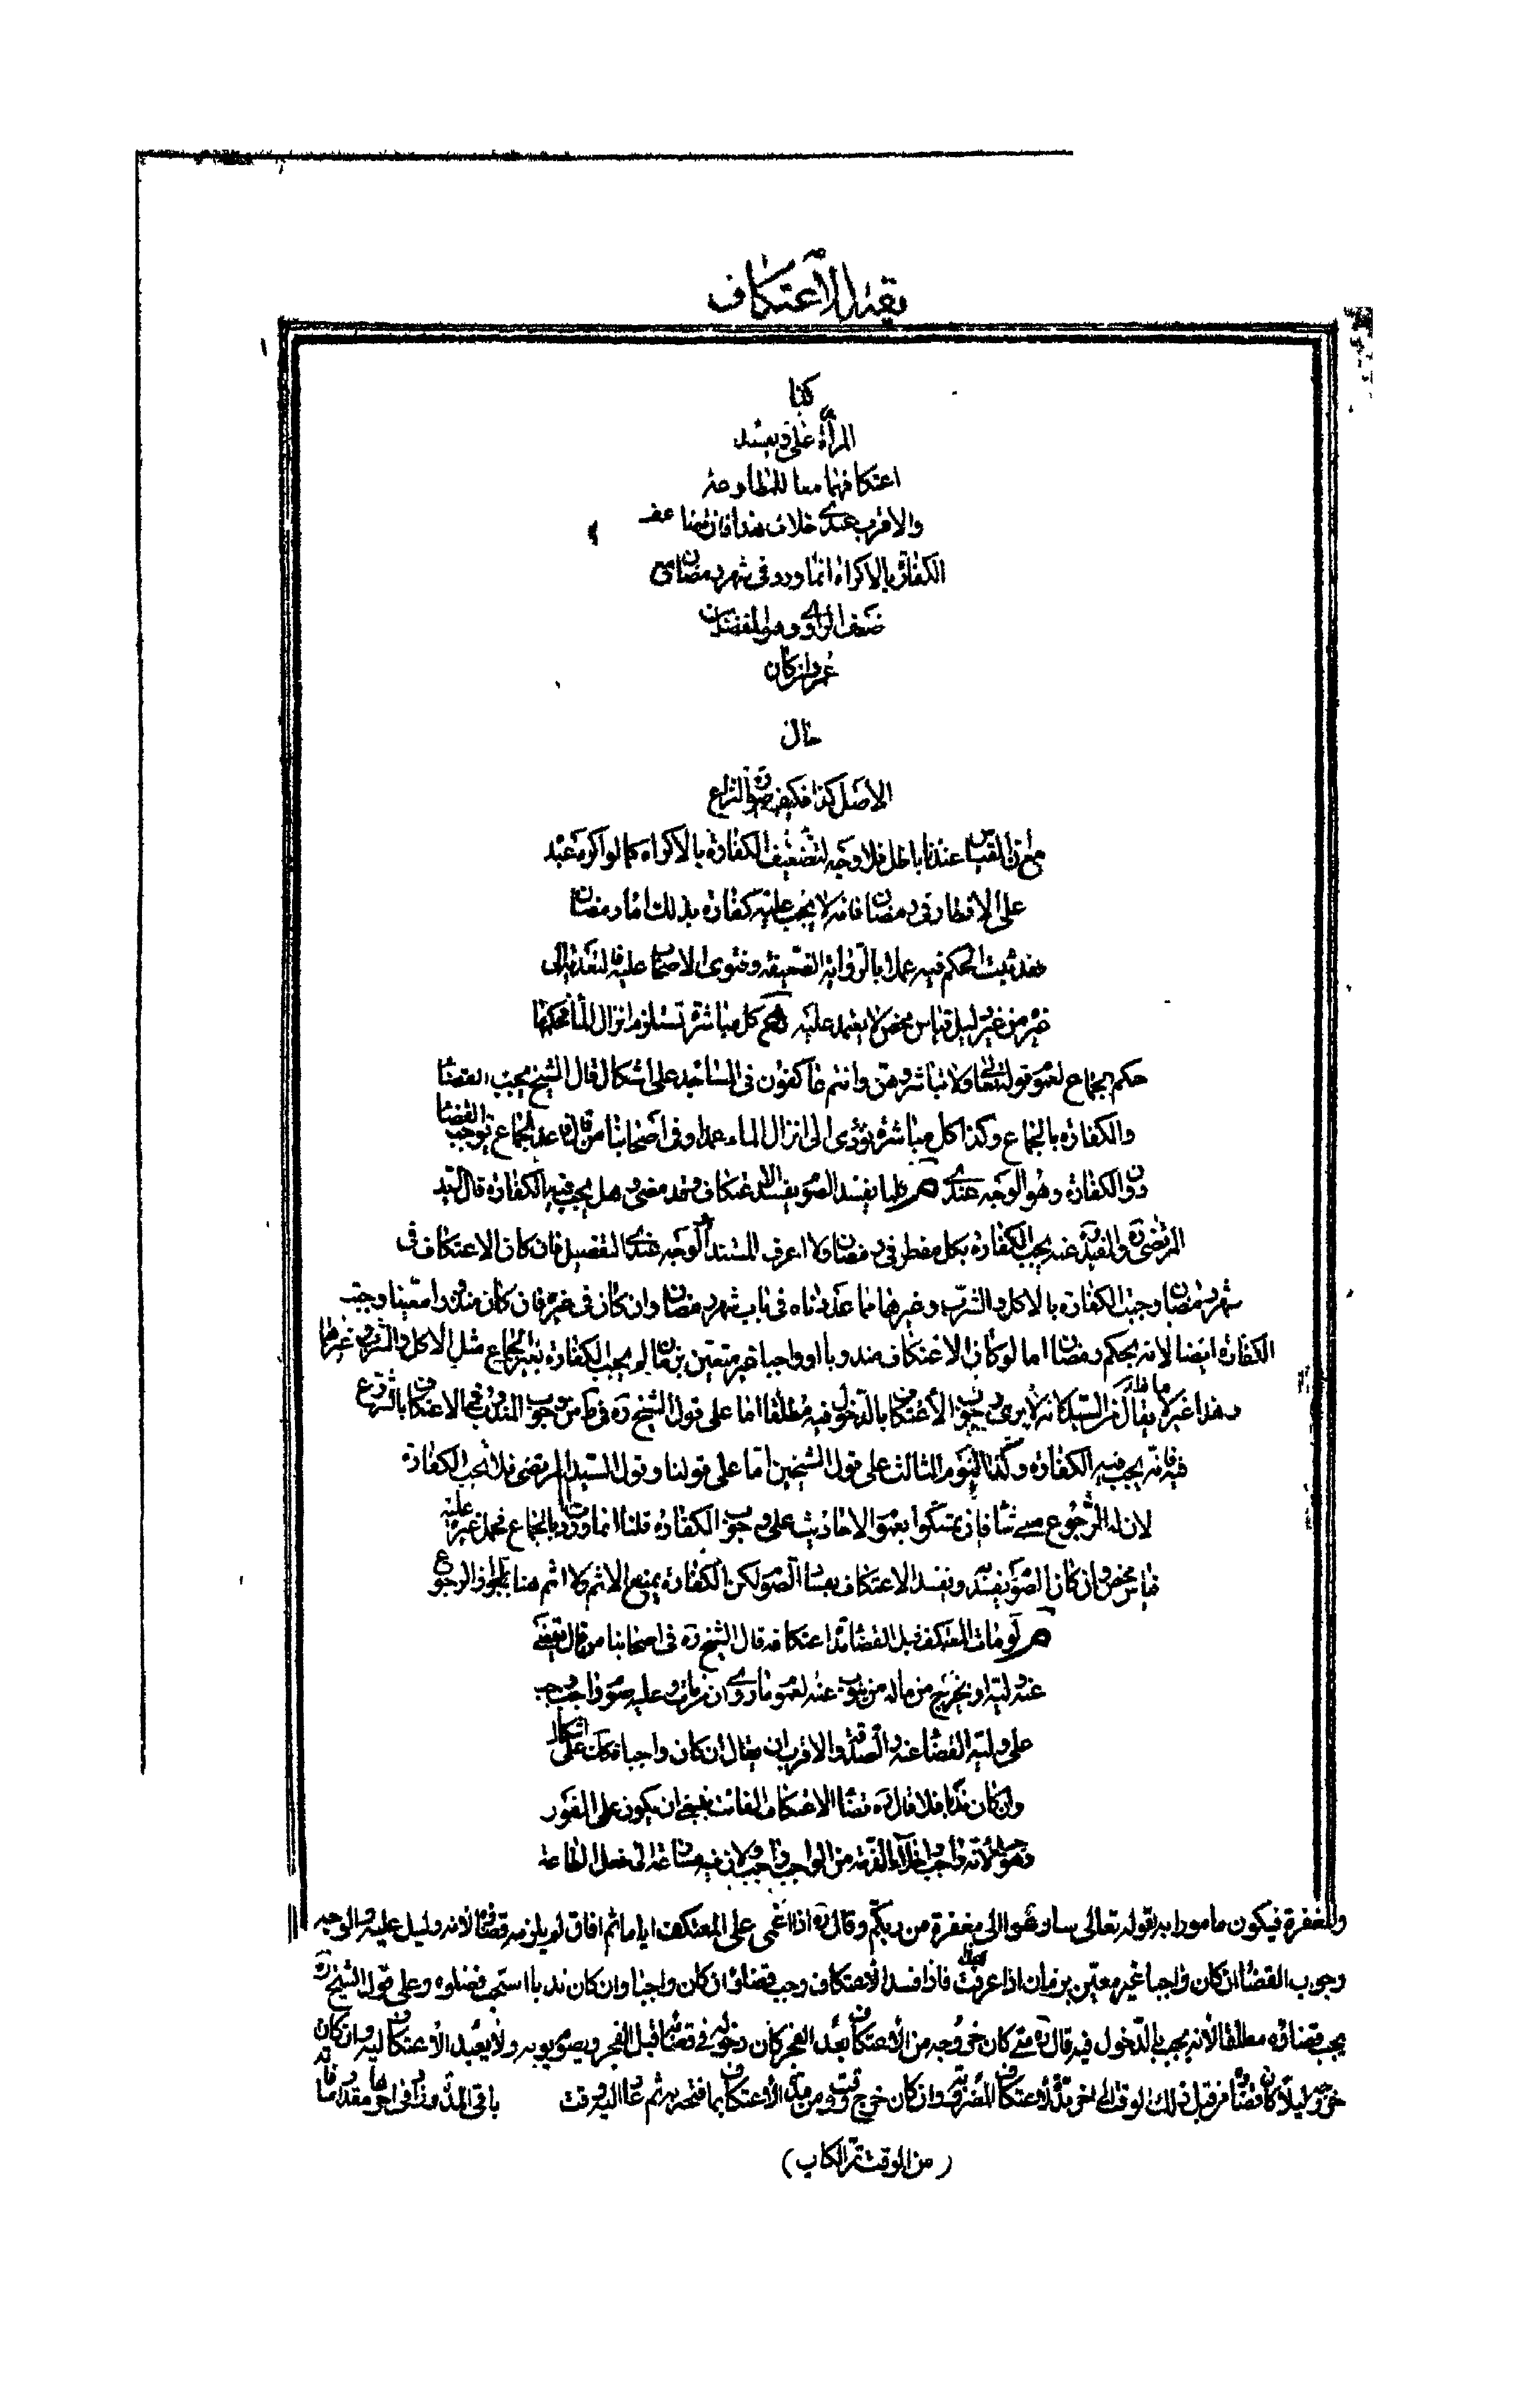 بقية الاعتكاف
كفارتا
المرأة على ويفسد
اعتكافهما معا للمطاوعة
والاقرب عندي خلاف هذا فان تضاعف
الكفارة بالاكراه انما ورد في شهر رمضان مع
ضعف الراوي وهو المفضل بن
عمر وان كان
حال
الاصل كذا فكيف صورة النزاع
مع ان القياس عندنا باطل فلا وجه لتضعيف الكفارة بالاكراه كما لو اكره عبد
على الافطار في رمضان فانه لا يجب عليه كفارة بذلك اما رمضان
فقد ثبت الحكم فيه عملا بالرواية الضعيفة وفتوى الاصحاب عليه فالتعدية الى
غيره من غير دليل قياس محض لا يعتمد عليه كل مباشرة تستلزم انزال الماء فحكمها
حكم الجماع لعموم قوله تعالى ولا تباشروهن وانتم عاكفون في المساجد على اشكال قال الشيخ يجب القضاء
والكفارة بالجماع وكذا كل مباشرة يؤدي الى انزال الماء عمدا وفي اصحابنا من قال ما عدا الجماع يوجب القضاء
دون الكفارة وهو الوجه عندي كلما يفسد الصوم يفسد الاعتكاف وقد مضى وهل يجب فيه الكفارة قال السيد
المرتضى ره والمفيد ره عنه يجب الكفارة بكل مفطر في رمضان ولا اعرف المستند والوجه عندي التفصيل فان كان الاعتكاف في
شهر رمضان وجبت الكفارة بالاكل والشرب وغيرهما مما عددناه في باب شهر رمضان وان كان في غيره فان كان منذورا معينا وجبت
الكفارة ايضا لانه بحكم رمضان اما لو كان الاعتكاف مندوبا او واجبا غير متعين بزمان لم يجب الكفارة بغير الجماع مثل الاكل والشرب وغيرهما
وهذا غير ما يقال عن السيد لانه لا يرى وجوب الاعتكاف بالدخول فيه مطلقا اما على قول الشيخ ره في ط من وجوب المندوب في الاعتكاف بالشروع
فيه فانه يجب فيه الكفارة وكذا اليوم الثالث على قول الشيخين اما على قولنا وقول السيد المرتضى فلا يجب الكفارة
لان له الرجوع متى شاء فان تمسكوا بعموم الاحاديث على وجوب الكفارة قلنا انما وردت بالجماع فحمل غيره عليه
قياس محض وان كان الصوم يفسد ويفسد الاعتكاف بفساد الصوم لكن الكفارة يتبع الاثم ولا اثم هنا لجواز الرجوع
لو مات المعتكف قبل القضاء اعتكافه قال الشيخ ره في اصحابنا من قال يقضي
عنه وليه او يخرج من ماله من ينوب عنه لعموم ما روي ان من مات وعليه صوم واجب وجب
على وليه القضاء عنه والصدقة والاقرب ان يقال ان كان واجبا فكذلك على اشكال
وان كان ندبا فلا قال ره قضاء الاعتكاف الفائت ينبغي ان يكون على الفور
وهو جيد لانه واجب واخلاء الذمة من الواجب واجب ولان فيه مسارعة الى فعل الطاعة
والمغفرة فيكون مامورا به لقوله تعالى سارعوا الى مغفرة من ربكم وقال ره اذا اغمي على المعتكف اياما ثم افاق لم يلزمه قضاؤه لانه لا دليل عليه والوجه
وجوب القضاء ان كان واجبا غير معين بزمان اذا عرفت هذا فاذا فسد الاعتكاف وجب قضاؤه ان كان واجبا وان كان ندبا استحب قضاؤه وعلى قول الشيخ ره
يجب قضاؤه مطلقا لانه يجب بالدخول فيه قال ره متى كان خروجه من الاعتكاف بعد الفجر كان دخوله في قضائه قبل الفجر ويصوم يومه ولا يعيد الاعتكاف ليله وان كان
خروجه ليلا كان قضاؤه من قبل ذلك الوقت الى اخر مدة الاعتكاف المضروبة وان كان خرج وقتا من مدة الاعتكاف بما فسخه به ثم عاد اليه وقد باقي المدة من اخرها مقدار ما فات
(من الوقت تم الكتاب)